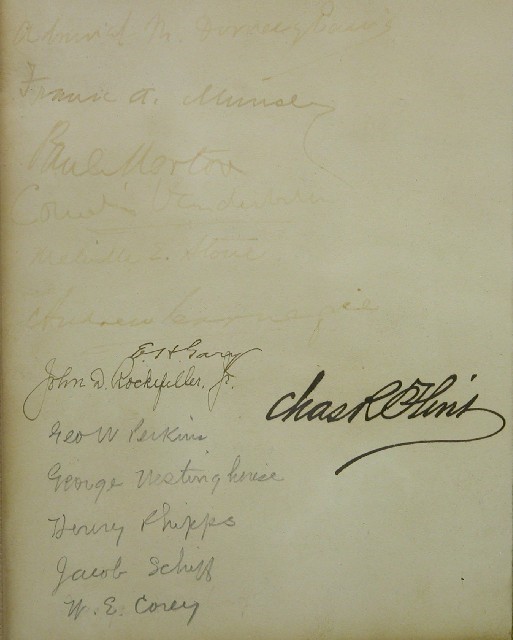 Frank A. Munsey
Paul Morton
Cornelius Vanderbilt
Melville E. Stone
Andrew Carnegie
E H Gary
John D. Rockefeller. Jr.
Chas R Flint
Geo W Perkins
George Westinghouse
Henry Phipps
Jacob Schiff
W. E. Corey